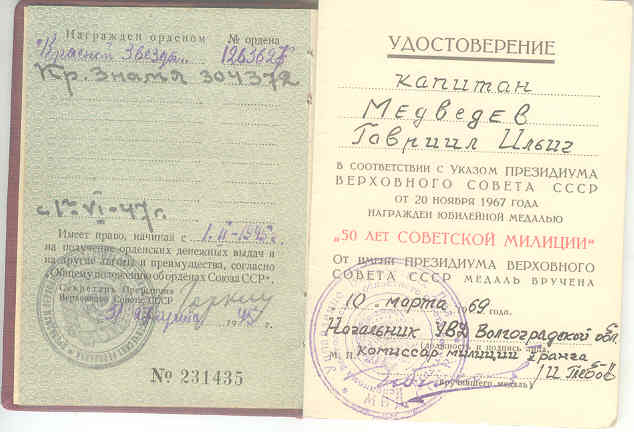 Награжден орденом № ордена
"Красной Звезды" 1263627
Кр. Знамя 304372
с 1го VI-47г.
Имеет право, начиная с 1. II - 1945 г.
на получение орденских денежных выдач и
на другие льготы и преимущества, согласно
«Общему положению об орденах Союза ССР»
Секретарь Президиума
Верховного Совета СССР
31 194 5 г.
№ 231435
УДОСТОВЕРЕНИЕ
капитан
Медведев
Гавриил Ильич
В СООТВЕТСТВИИ С УКАЗОМ ПРЕЗИДИУМА
ВЕРХОВНОГО СОВЕТА СССР
ОТ 20 НОЯБРЯ 1967 ГОДА
НАГРАЖДЕН ЮБИЛЕЙНОЙ МЕДАЛЬЮ
„50 ЛЕТ СОВЕТСКОЙ МИЛИЦИИ“
ОТ ИМЕНИ ПРЕЗИДИУМА ВЕРХОВНОГО
СОВЕТА СССР МЕДАЛЬ ВРУЧЕНА
10 марта 69 года.
Начальник УВД Волгоградской обл
(должность и подпись лица,
М. П. комиссар милиции ранга
вручившего медаль)
МВД